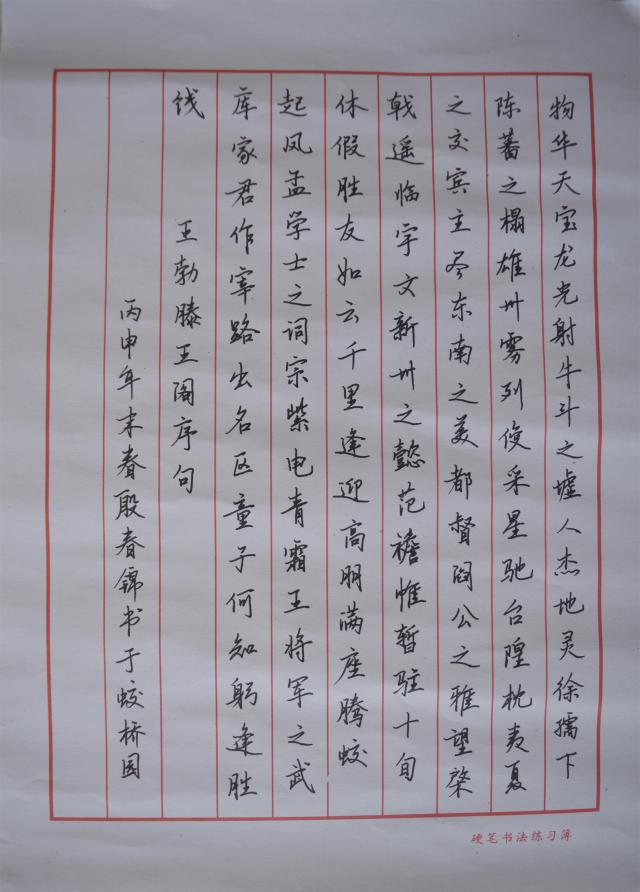 物华天宝龙光射牛斗之墟人杰地灵徐孺下
陈蕃之榻雄州雾列俊采星驰台隍枕夷夏
之交宾主尽东南之美都督阎公之雅望棨
戟遥临宇文新州之懿范襜帷暂驻十旬
休假胜友如云千里逢迎高朋满座腾蛟
起凤孟学士之词宗紫电青霜王将军之武
库家君作宰路出名区童子何知躬逢胜
饯
王勃滕王阁序句
丙申年末春殷春锦书于蛟桥园
硬笔书法练习簿